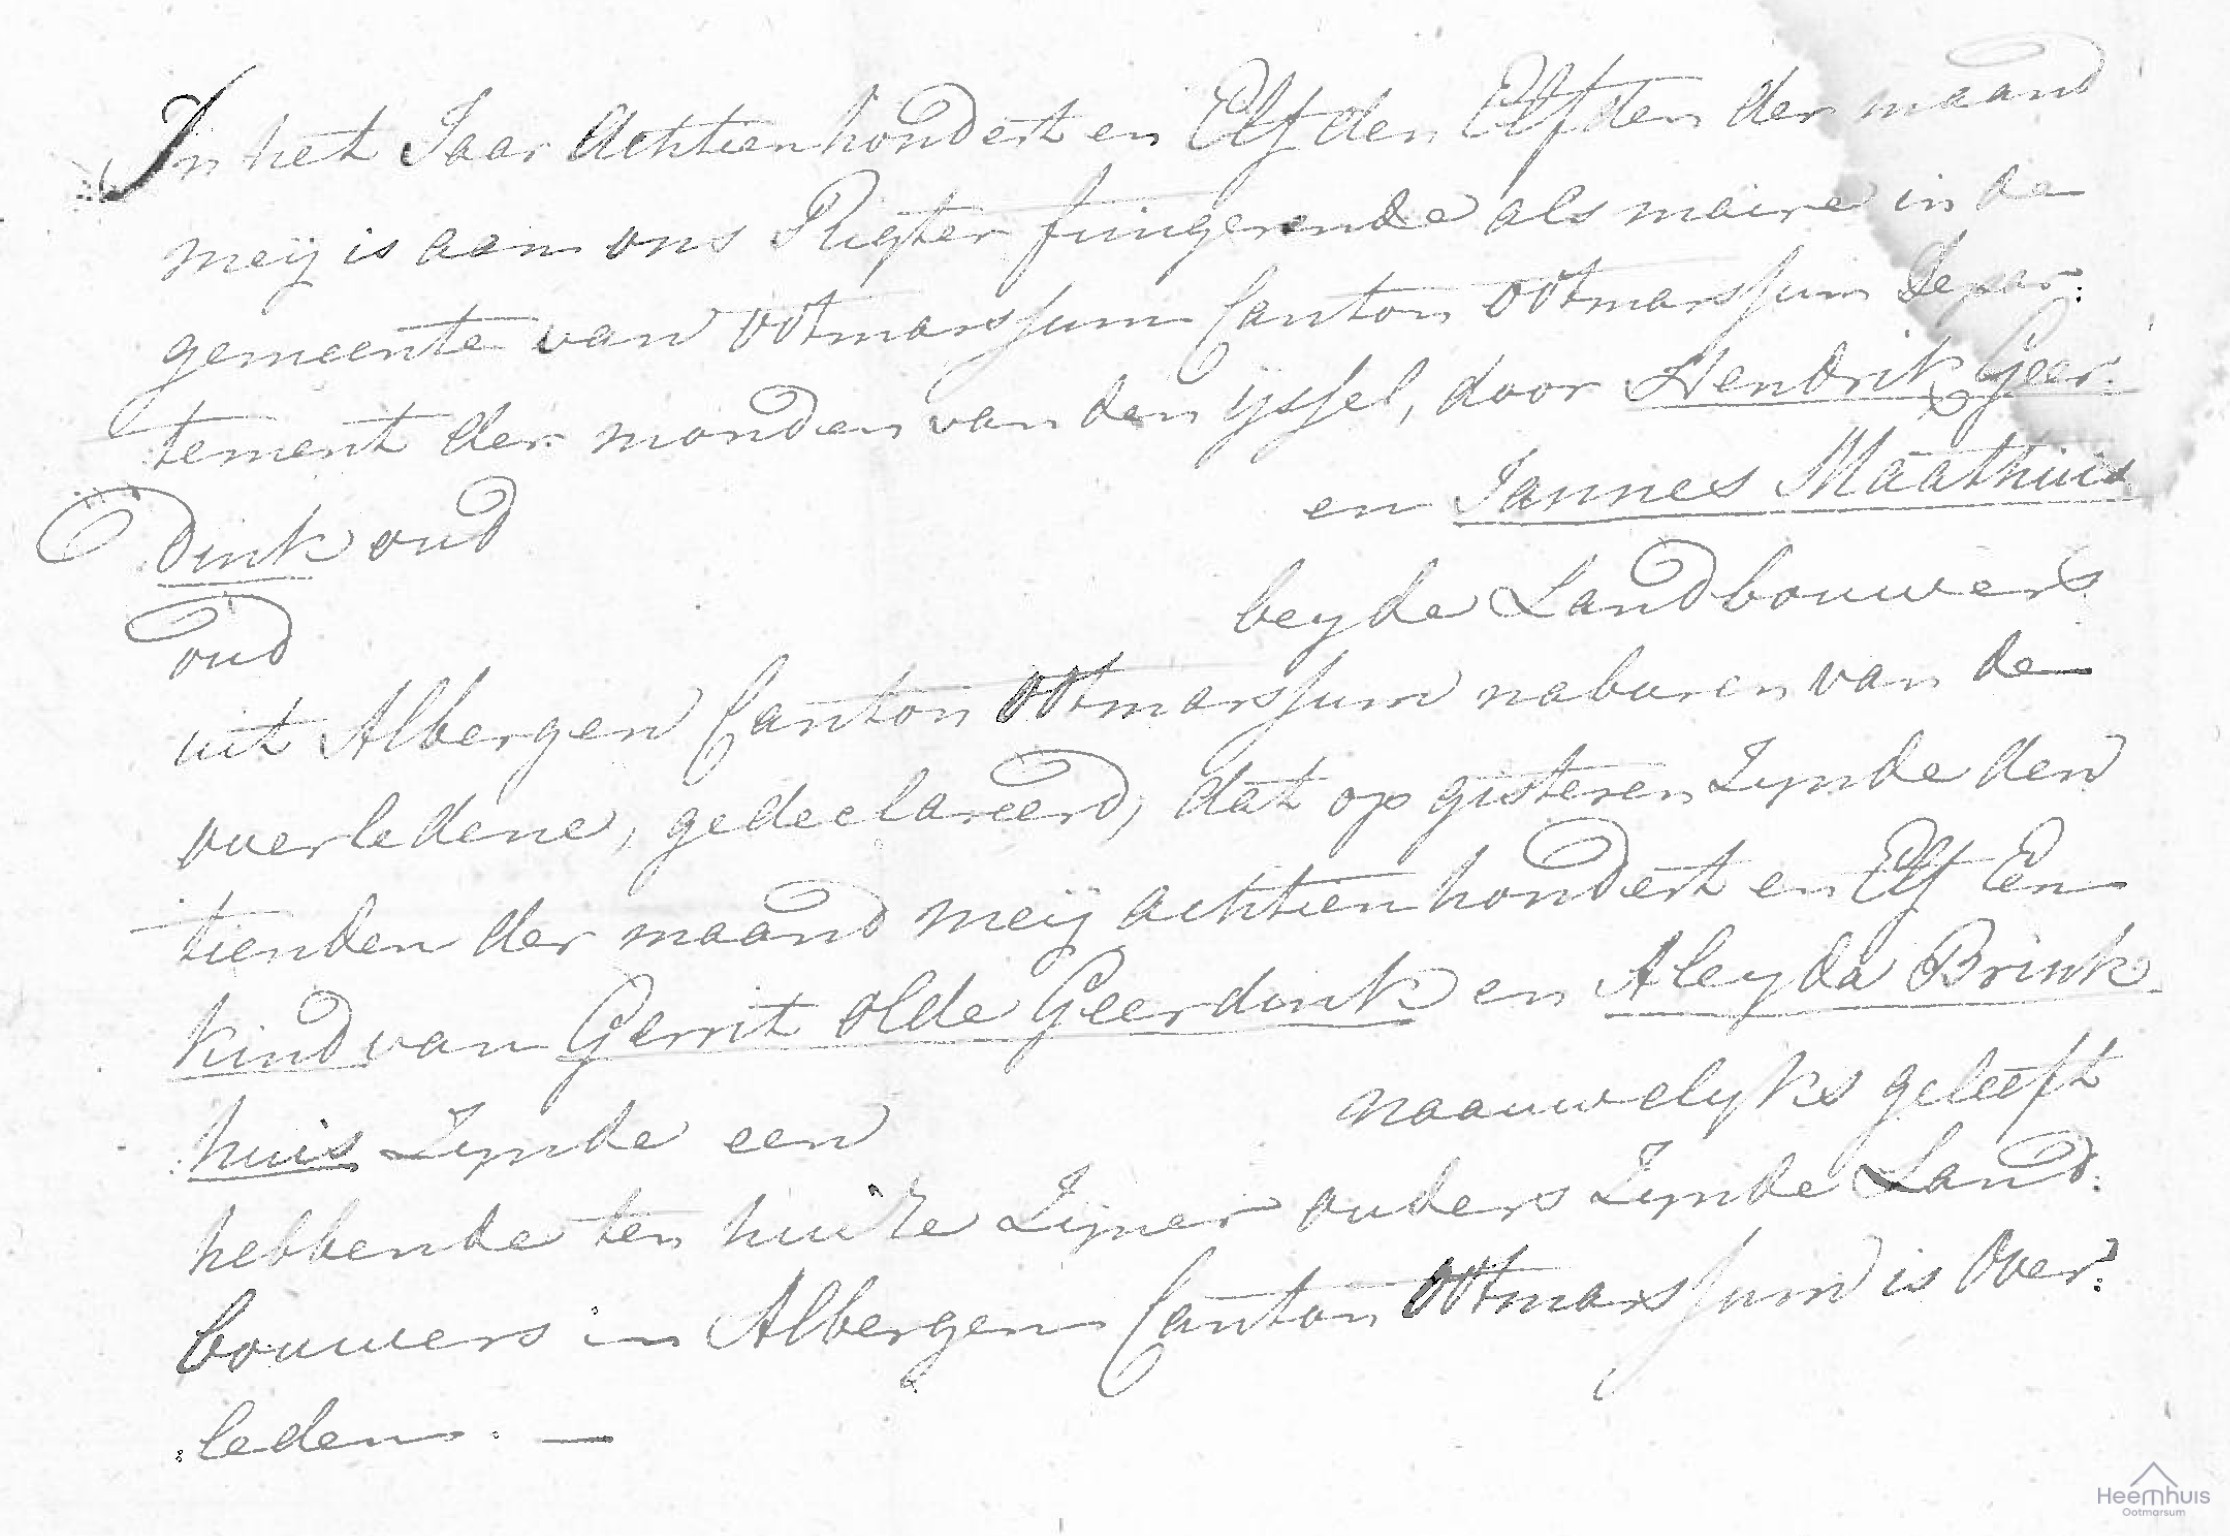 In het Jaar Achtienhondert en Elf den Elfden der maand
meij is aan ons Rigter fungerende als maire in de
gemeente van Ootmarssum Canton Ootmarssum Depar:
tement der monden van den ijssel, door Hendrik Geer:
dink oud en Jannes Maathuis
oud beyde Landbouwers
uit Albergen Canton Ootmarssum naburen van de
overledene, gedeclareerd, dat op gisteren Zynde den
tienden der maand meij achtienhondert en Elf Een
kind van Gerrit olde Geerdink en Aleyda Brink
:huis Zynde een naauwelyks geleeft
hebbende ten huize Zyner ouders Zynde Land:
bouwers in Albergen Canton Ootmarssum is Over:
:leden. —
Heemhuis
Ootmarsum